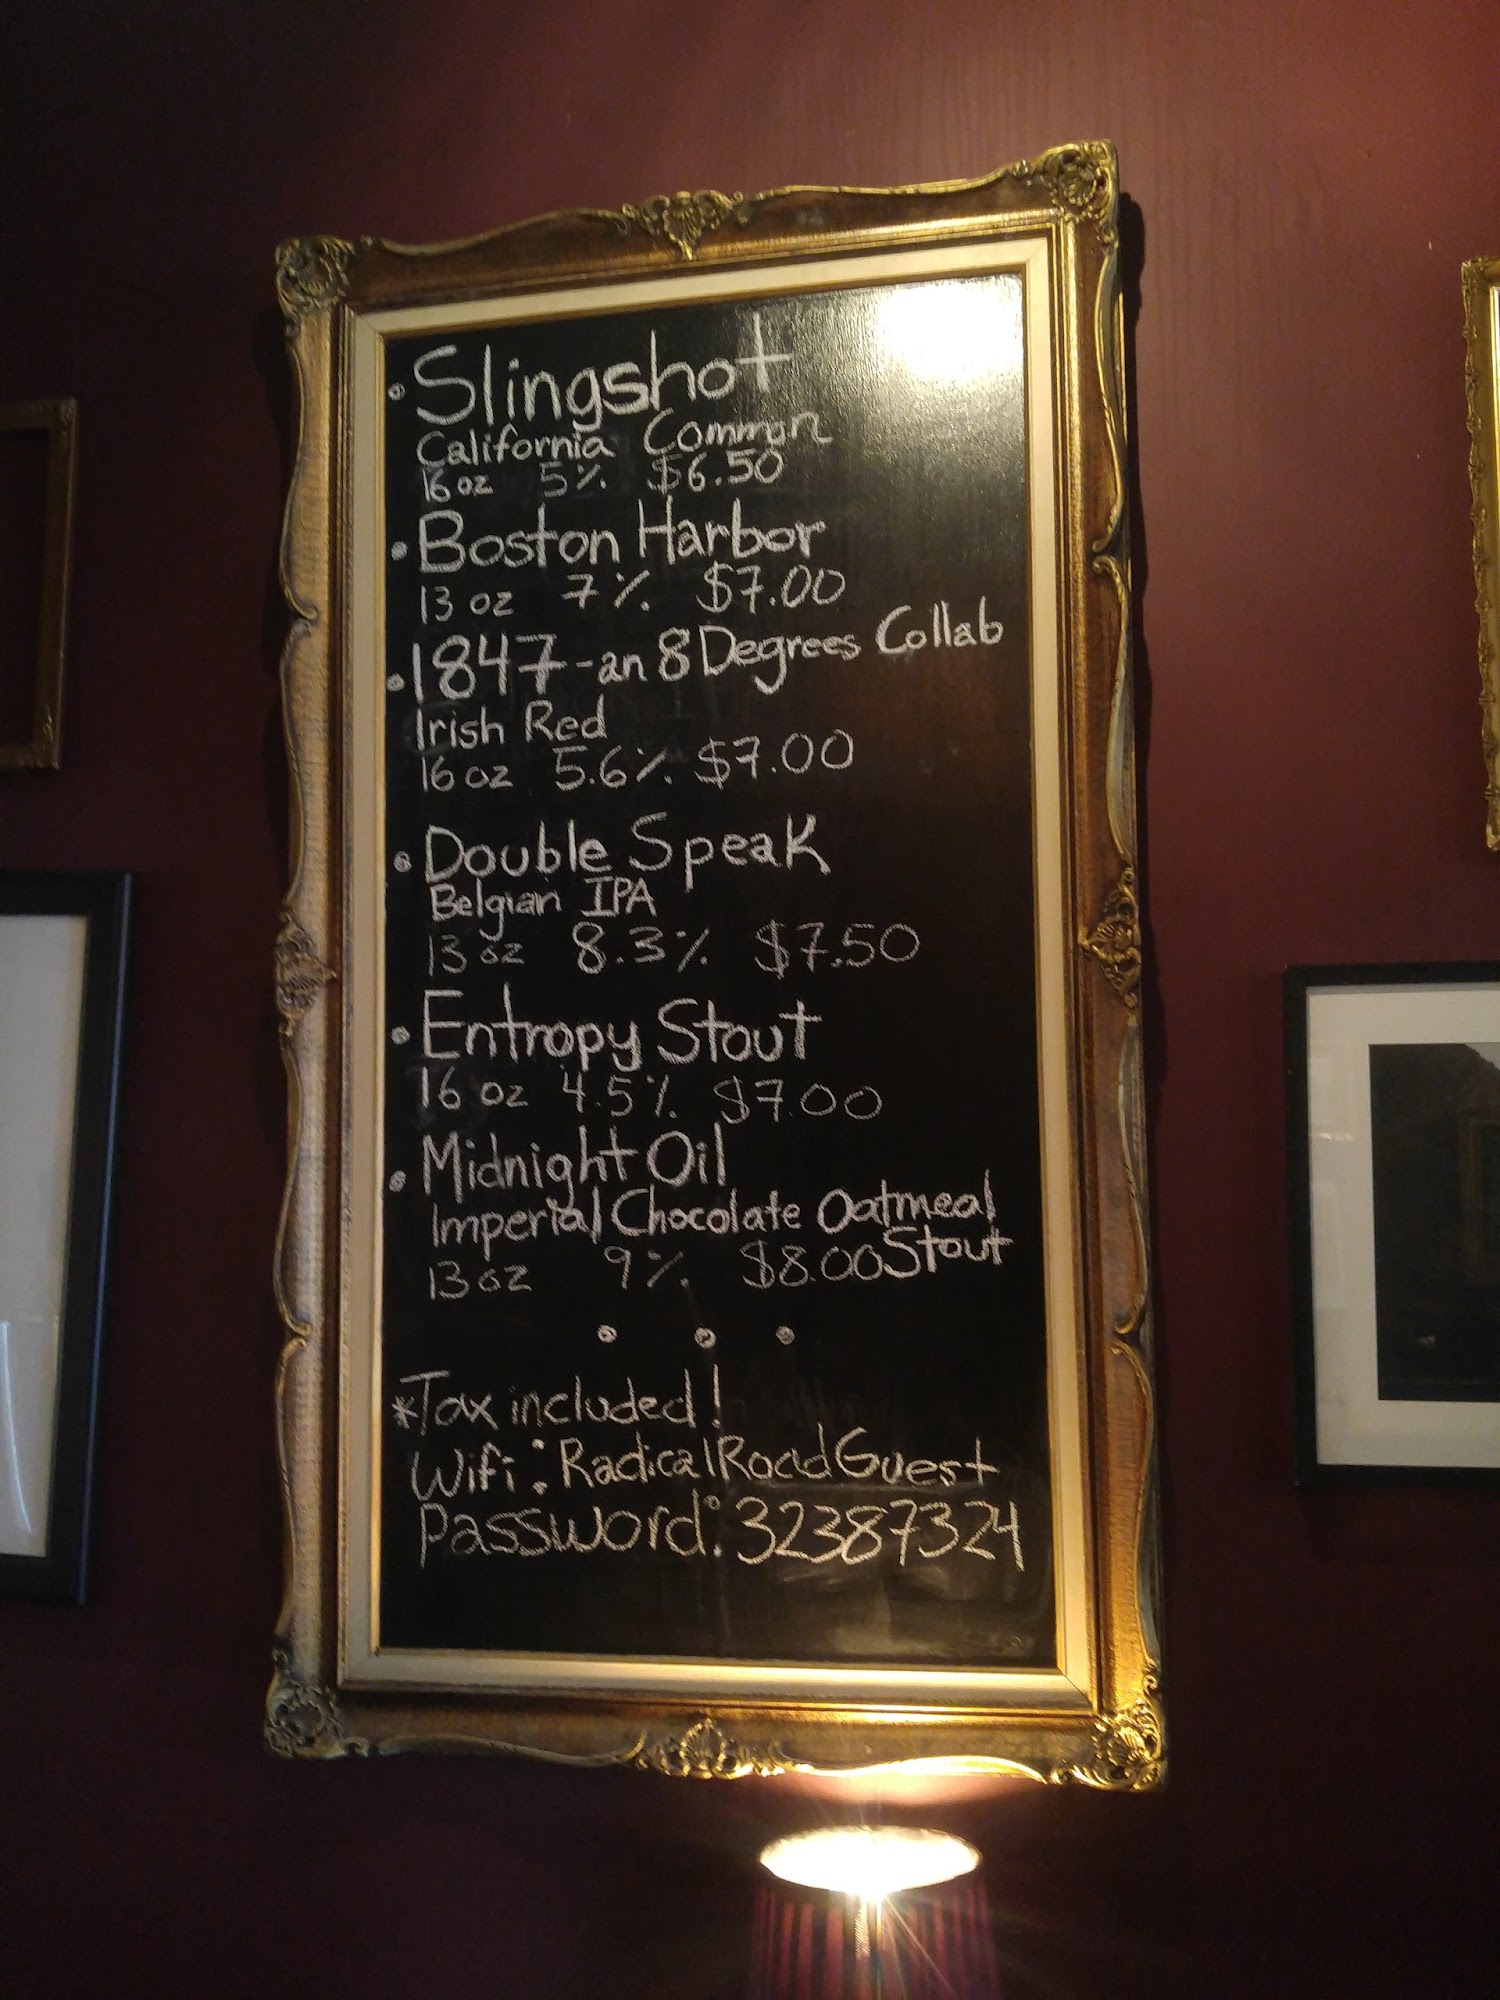 • Slingshot
California Common
16 oz 5% $6.50
• Boston Harbor
13 oz 7% $7.00
• 1847 - an 8 Degrees Collab
Irish Red
16 oz 5.6% $7.00
• Double Speak
Belgian IPA
13 oz 8.3% $7.50
• Entropy Stout
16 oz 4.5% $7.00
• Midnight Oil
Imperial Chocolate Oatmeal
Stout
13 oz 9% $8.00
• • •
*Tax included!
Wifi: RadicalRoadGuest
Password: 32387324